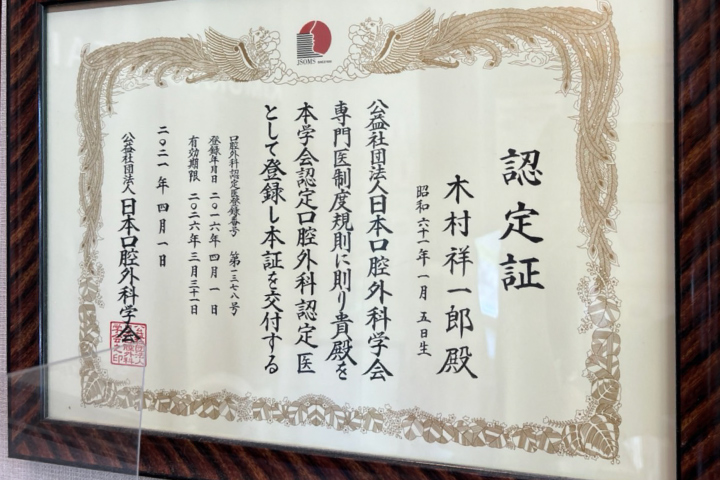 JSOMS
認定証
木村祥一郎殿
昭和六十一年一月五日生
公益社団法人日本口腔外科学会
専門医制度規則に則り貴殿を
本学会認定口腔外科認定医
として登録し本証を交付する
口腔外科認定医登録番号 第一三七八号
登録年月日 二〇一六年四月一日
有効期限 二〇二六年三月三十一日
二〇二一年四月一日
公益社団法人日本口腔外科学会